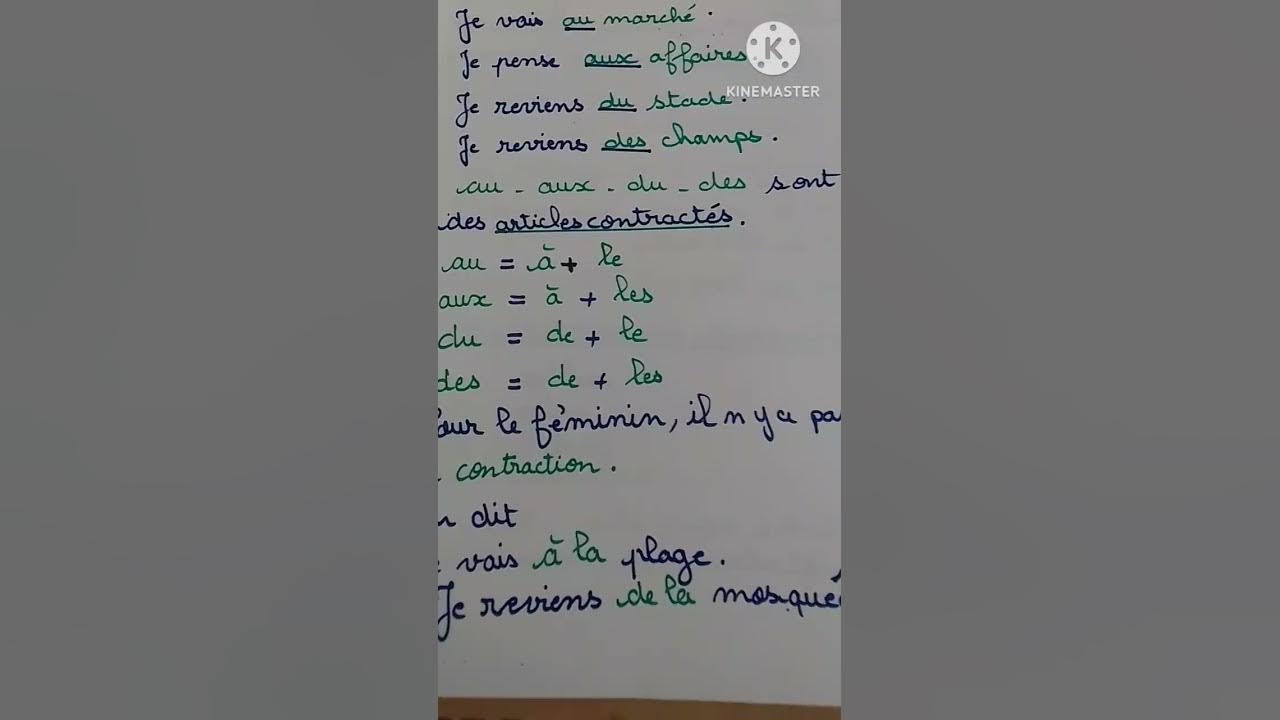 Je vais au marché.
Je pense aux affaires
KINEMASTER
Je reviens du stade.
Je reviens des champs.
au - aux - du - des sont
des articles contractés.
au = à + le
aux = à + les
du = de + le
des = de + les
our le féminin, il n y a pa
contraction.
dit
vais à la plage.
Je reviens de la mosqué